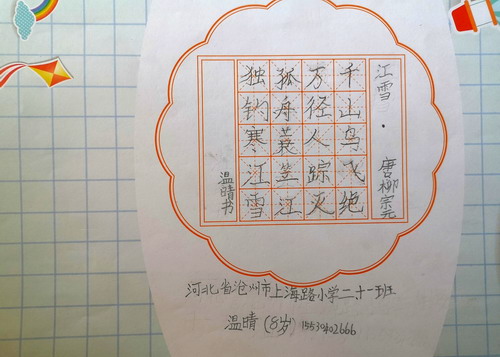 江雪·唐柳宗元
千山鸟飞绝
万径人踪灭
狐舟蓑笠江
独钓寒江雪
温晴书
河北省沧州市上海路小学二·十一班
温晴(8岁)